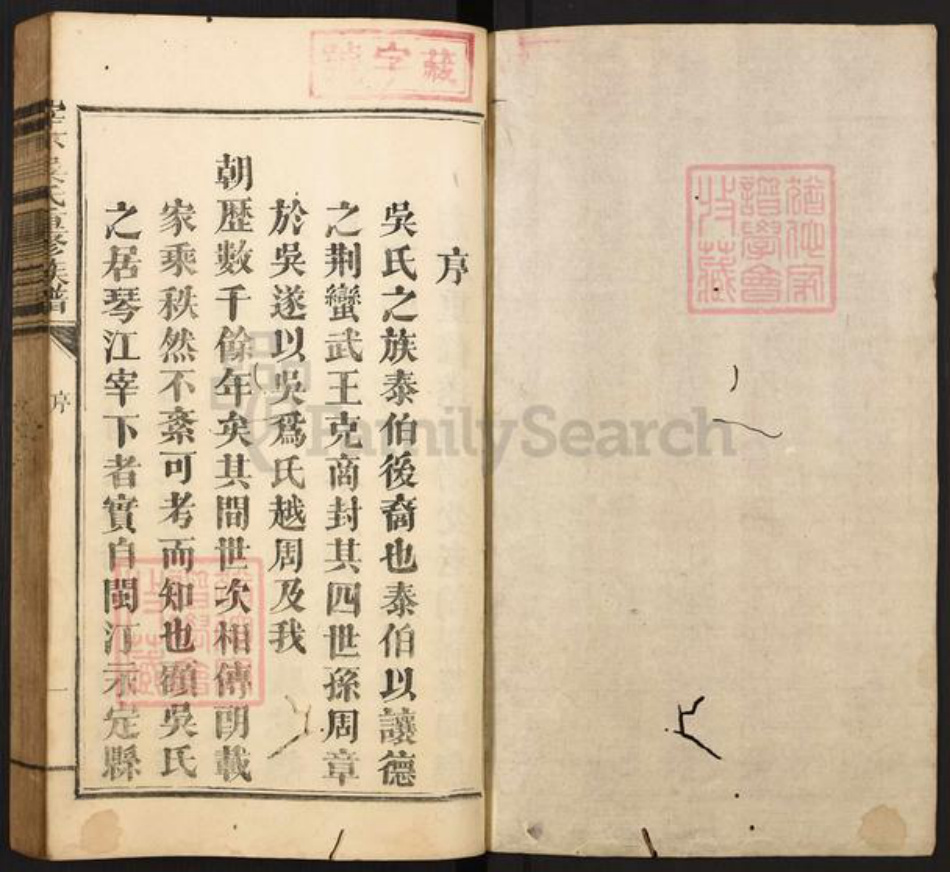 藏字號
序
吳氏之族泰伯後裔也泰伯以讓德
之荆蠻武王克商封其四世孫周章
於吳遂以吳爲氏越周及我
朝歷數千餘年矣其間世次相傳朗載
家乘秩然不紊可考而知也顧吳氏
之居琴江宰下者實自閩汀永定縣
吳氏重修族譜
序
一
譜學會
收藏
FamilySearch